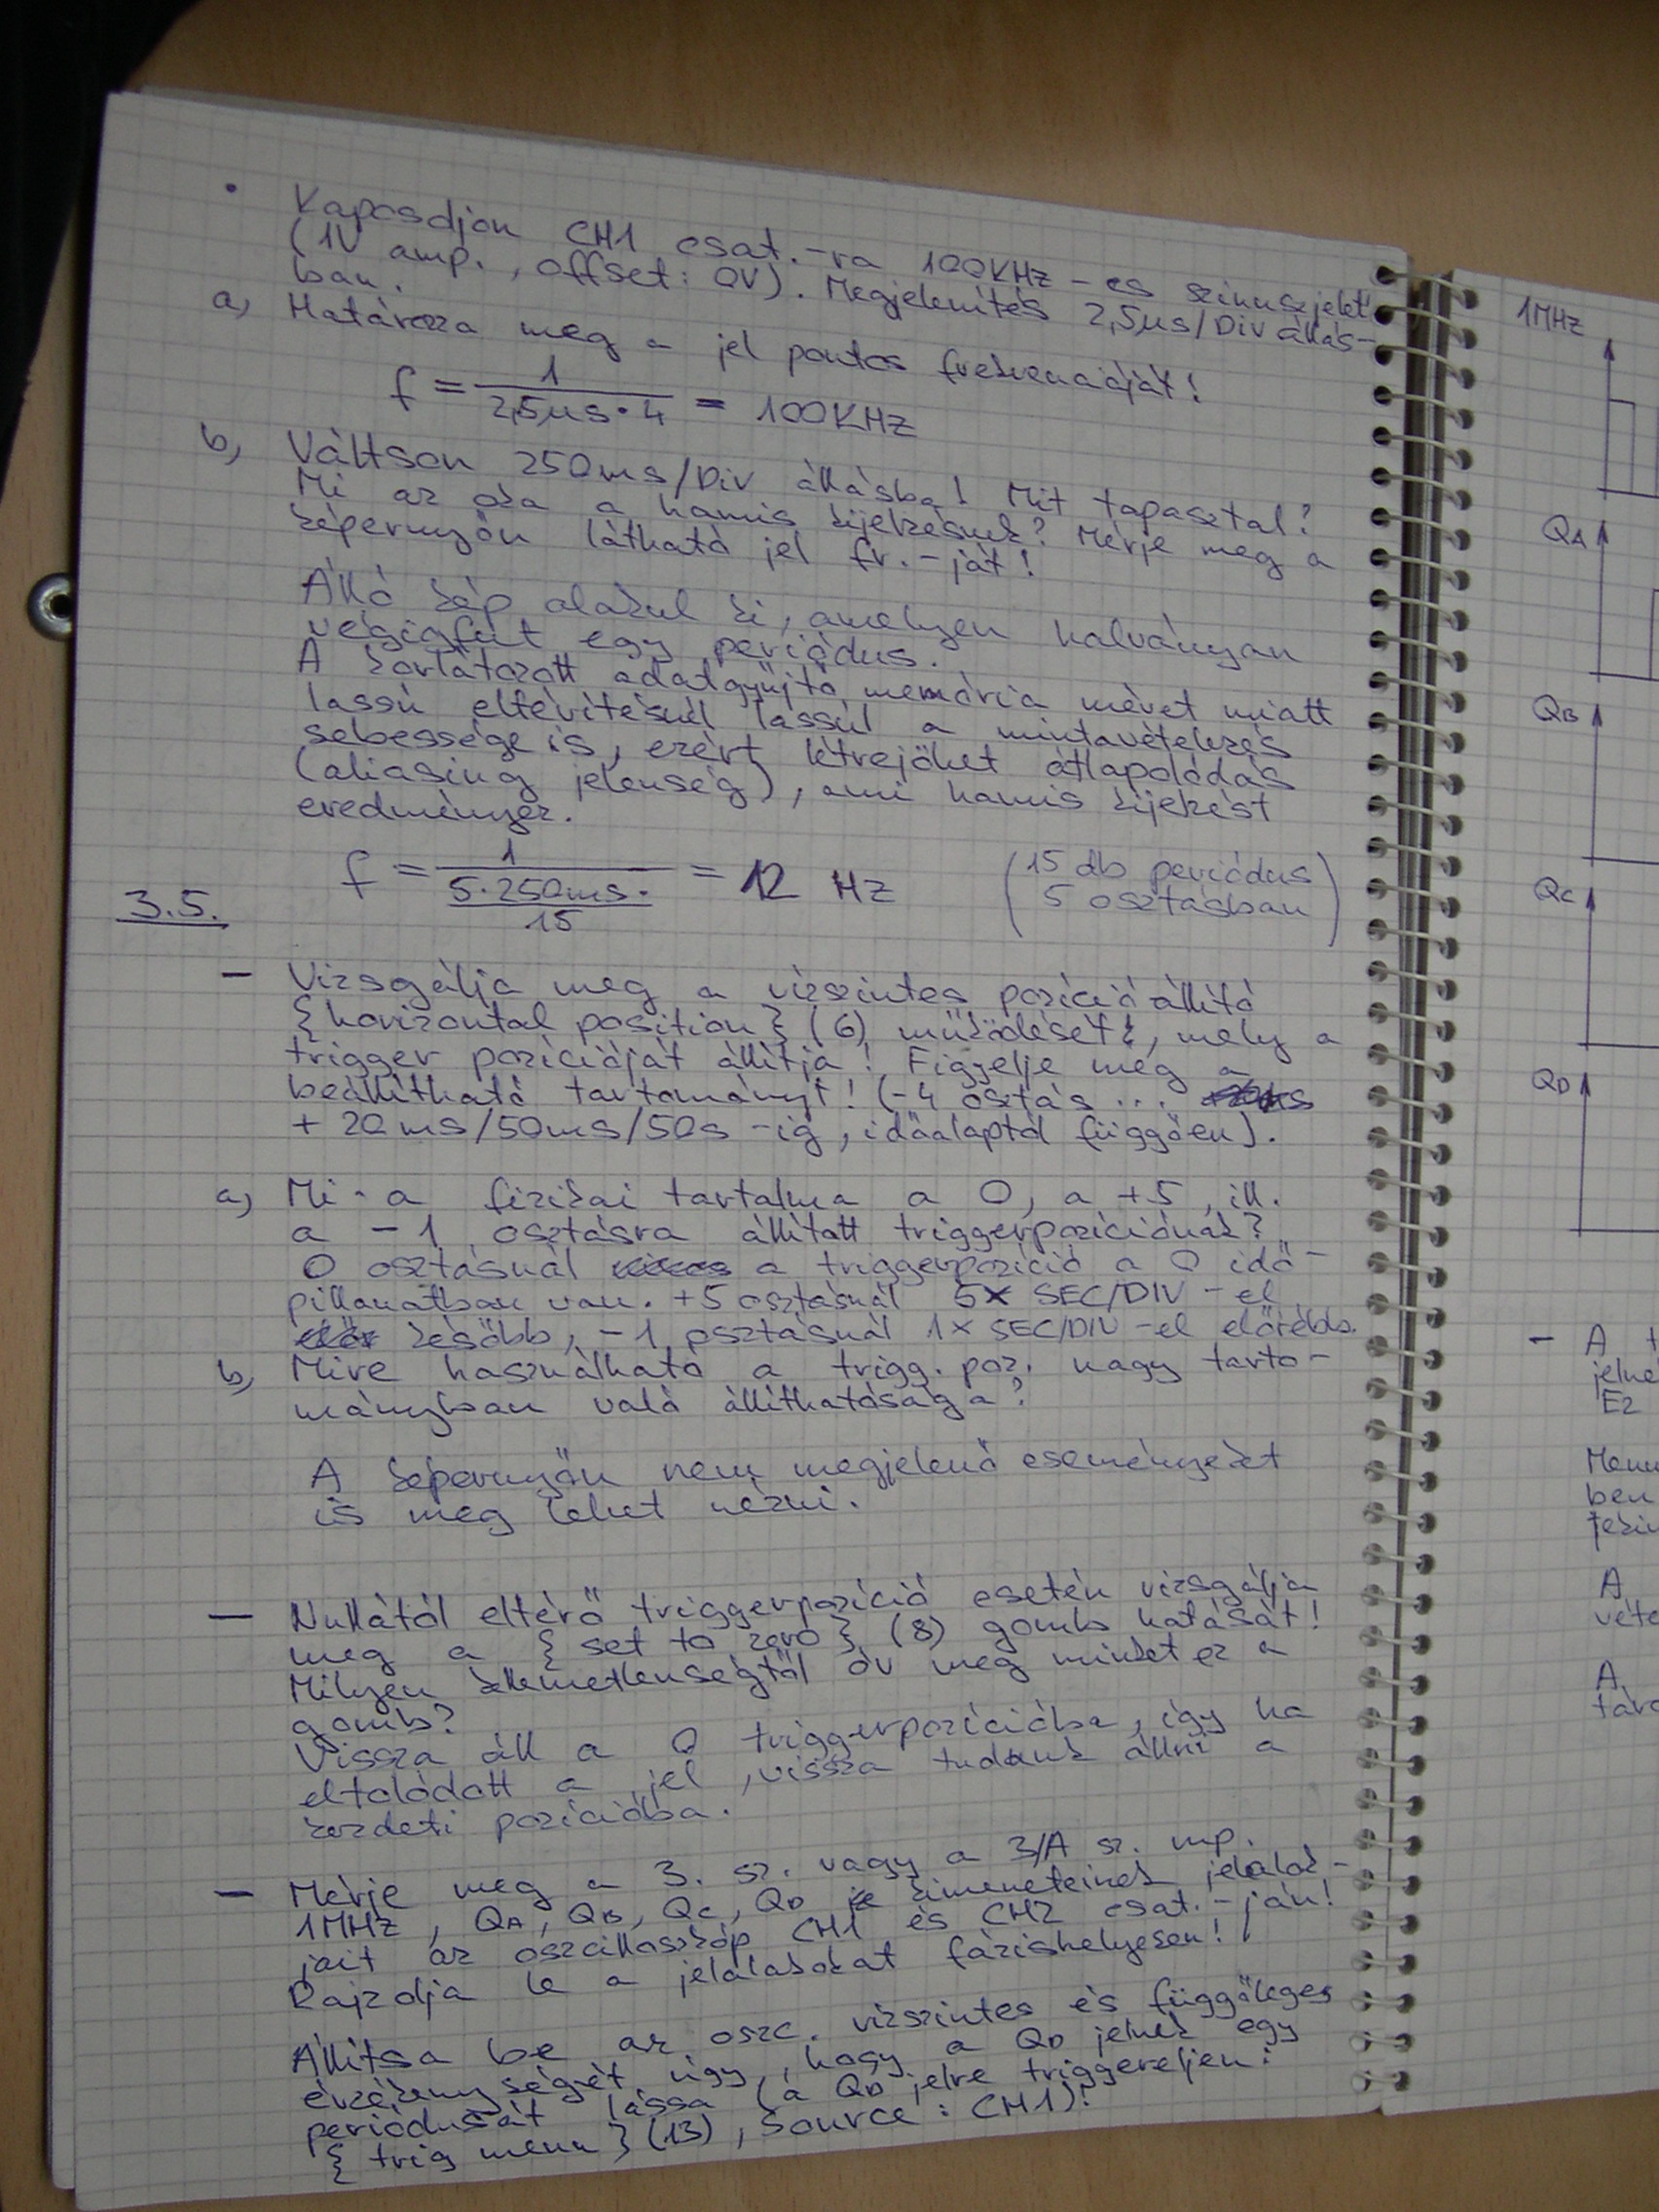 • Kapcsoljon CH1 csat.-ra 100KHz-es szinuszjelet
(1V amp., offset: 0V). Megjelenítés 2,5µs/Div állás-
ban.
a) Határozza meg a jel pontos frekvenciáját!
f = 1 / 2,5µs·4 = 100KHz
b) Váltson 250ms/Div állásba! Mit tapasztal?
Mi az oka a hamis kijelzésnek? Mérje meg a
képernyőn látható jel fr.-ját!
Álló kép alakul ki, amelyen halványan
végigfut egy periódus.
A korlátozott adatgyűjtő memória méret miatt
lassú eltérítésnél lassúl a mintavételezés
sebessége is, ezért létrejöhet átlapolódás
(aliasing jelenség), ami hamis kijelzést
eredményez.
f = 1 / 5·250ms· / 15 = 12 Hz (15 db periódus
5 osztásban)
3.5.
– Vizsgálja meg a vízszintes pozícióállító
{horizontal position} (6) működését, mely a
trigger pozícióját állítja! Figyelje meg a
beállítható tartományt! (-4 osztás ...
+ 20ms/50ms/50s -ig, időalaptól függően).
a) Mi a fizikai tartalma a 0, a +5, ill.
a -1 osztásra állított triggerpozíciónak?
0 osztásnál a triggerpozíció a 0 idő-
pillanatban van. +5 osztásnál 5x SEC/DIV-el
később, -1 osztásnál 1x SEC/DIV-el előrébb.
b) Mire használható a trigg. poz. nagy tarto-
mányban való állíthatósága?
A képernyőn nem megjelenő eseményeket
is meg lehet nézni.
– Nullától eltérő triggerpozíció esetén vizsgálja
meg a {set to zero} (8) gomb hatását!
Milyen kellemetlenségtől óv meg minket ez a
gomb?
Vissza áll a 0 triggerpozícióba, így ha
eltolódott a jel, vissza tudunk állni a
kezdeti pozícióba.
– Mérje meg a 3. sz. vagy a 3/A sz. mp.
1MHz, QA, QB, QC, QD kimeneteinek jelalak-
jait az oszcilloszkóp CH1 és CH2 csat.-ján!
Rajzolja le a jelalakokat fázishelyesen!
Állítsa be az oszc. vízszintes és függőleges
érzékenységét úgy, hogy a QD jelnek egy
periódusát lássa (a QD jelre triggereljen:
{trig menu} (13), Source: CH1)!
1MHz
QA
QB
QC
QD
– A
jelne
Ez
Menu
ben
A
véte
A
táro